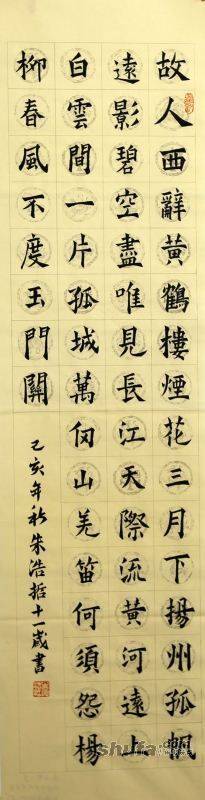 故人西辭黃鶴樓煙花三月下揚州孤帆
遠影碧空盡唯見長江天際流黃河遠上
白雲間一片孤城萬仞山羌笛何須怨楊
柳春風不度玉門關
己亥年秋朱浩哲十一歲書